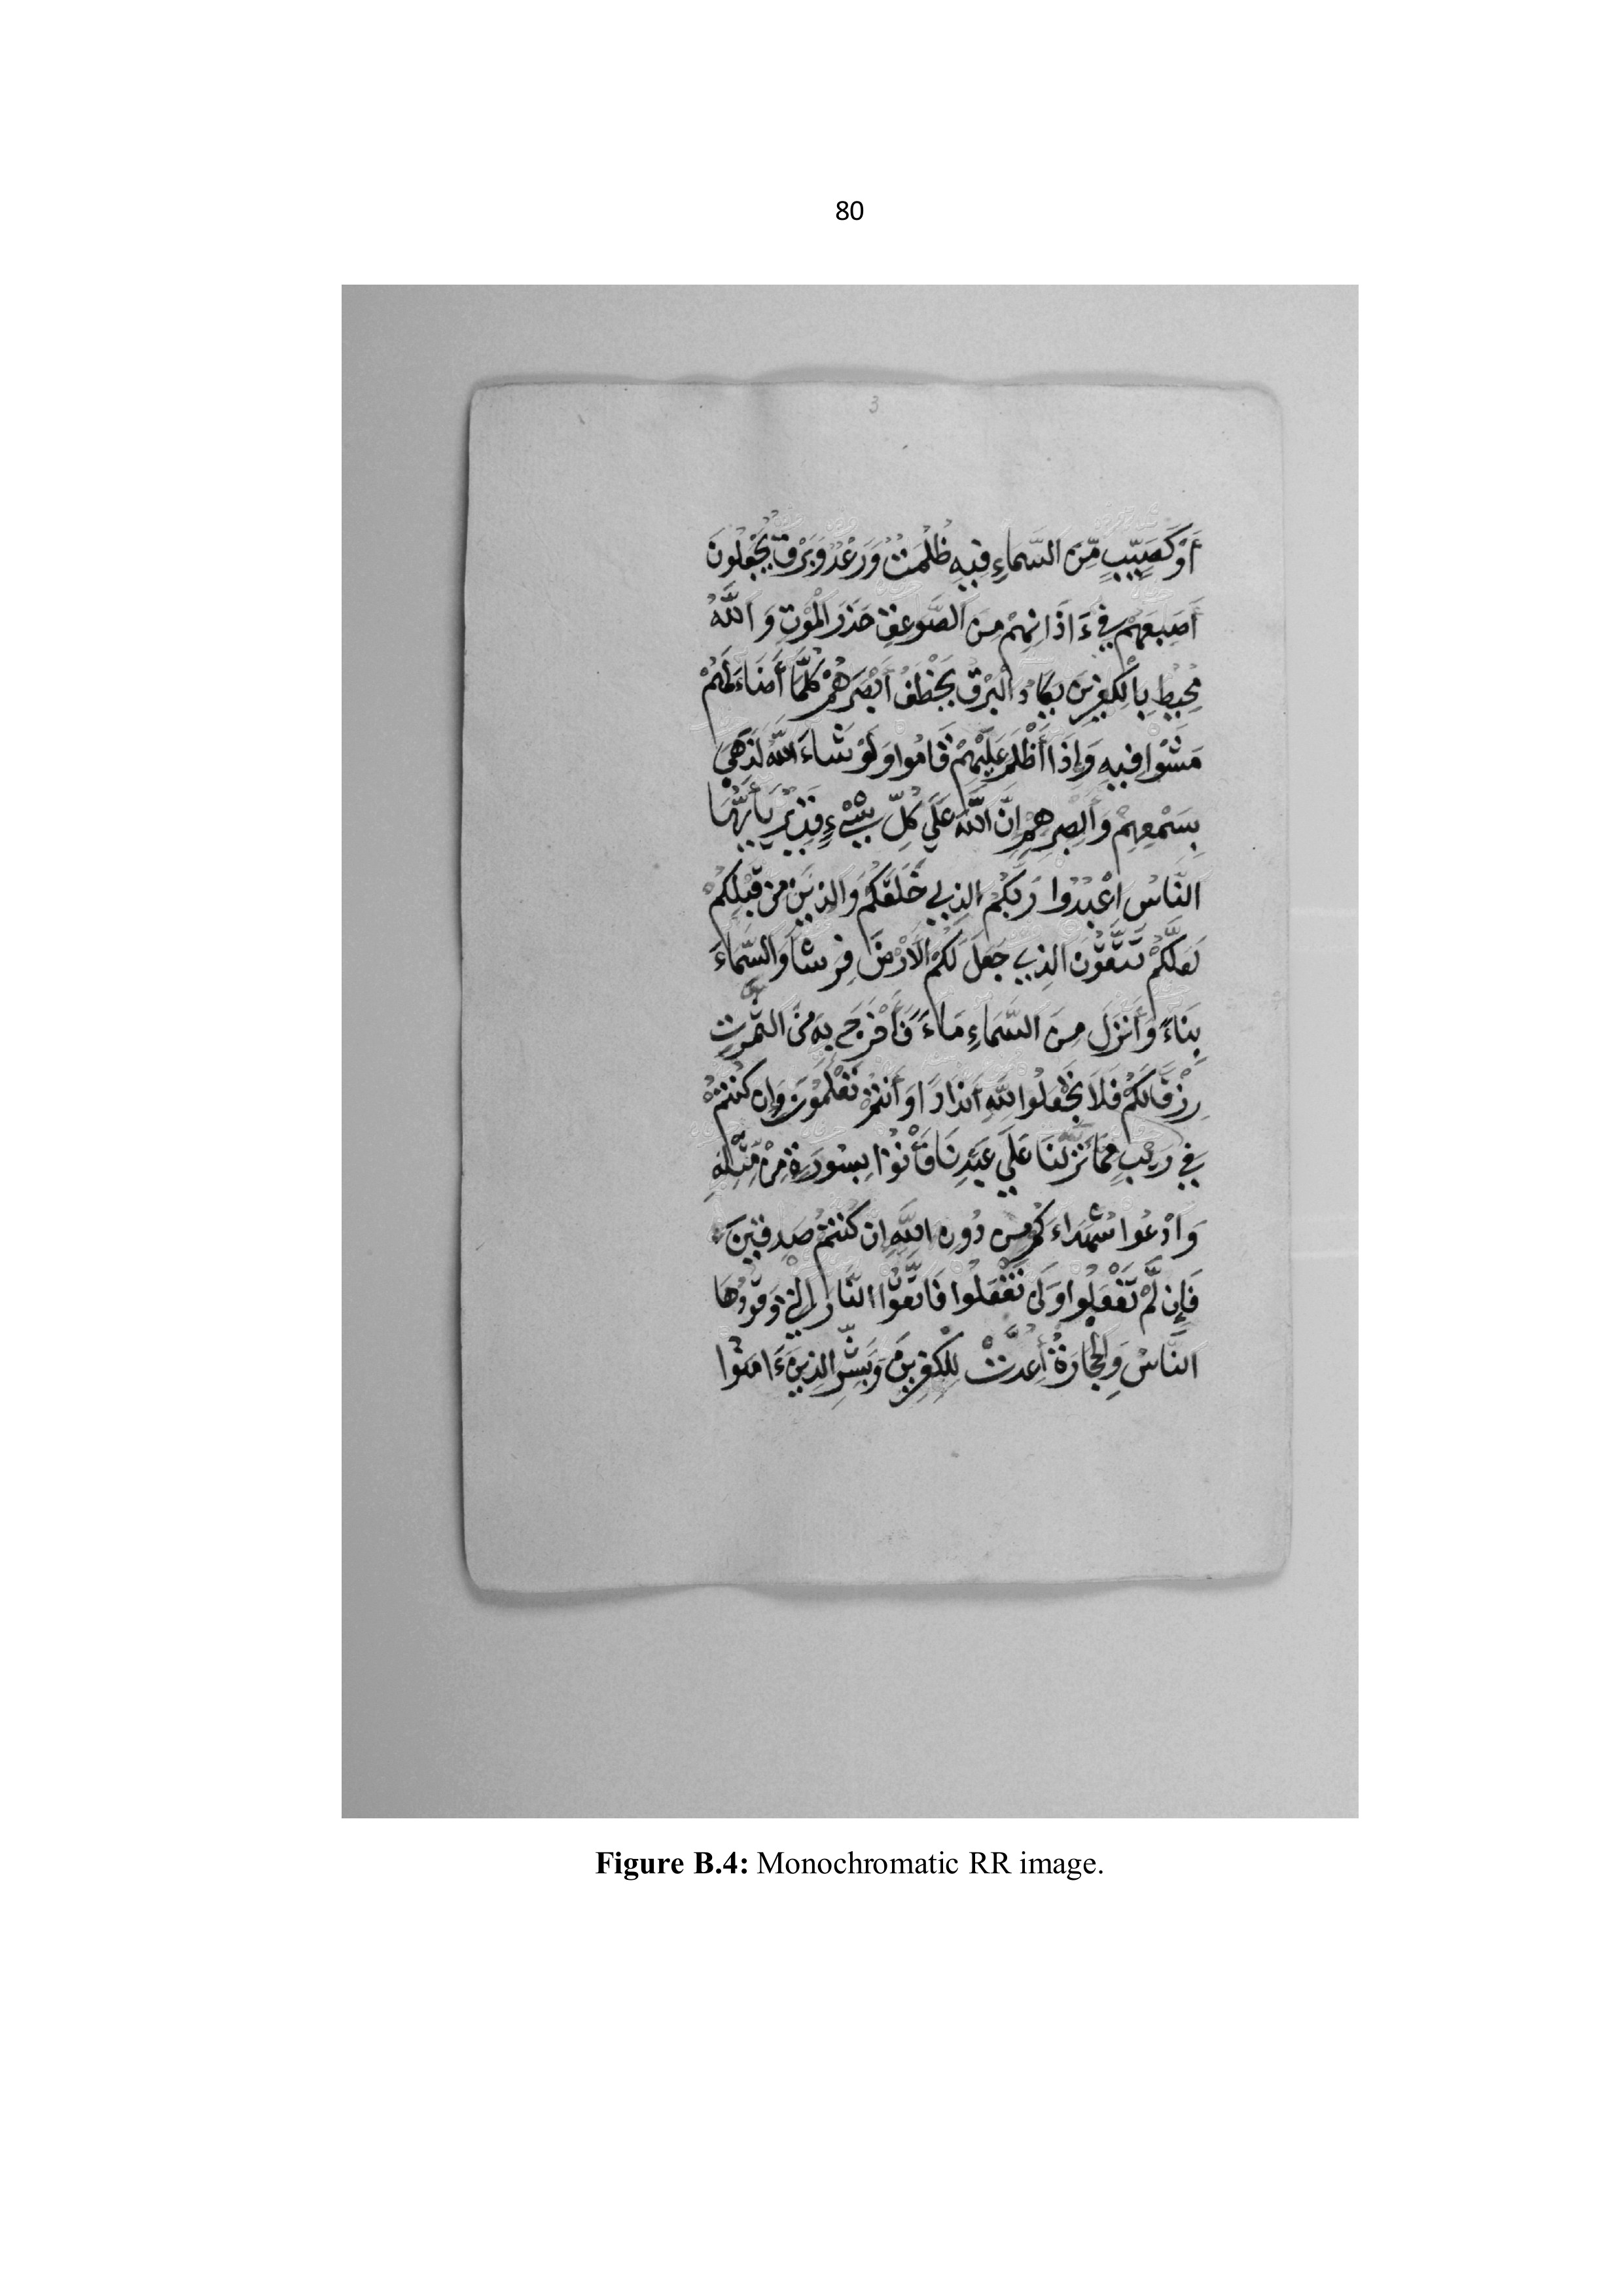 80
3
أَوْ كَصَيِّبٍ مِّنَ السَّمَاءِ فِيهِ ظُلُمَتٌ وَرَعْدٌ وَبَرْقٌ يَجْعَلُونَ
أَصَبِعَهُمْ فِي ءَاذَانِهِمْ مِنَ الصَّوَعِقِ حَذَرَ الْمَوْتِ وَاللَّهُ
مُحِيطٌ بِالْكَفِرِينَ يَكَادُ الْبَرْقُ يَخْطَفُ أَبْصَرَهُمْ كُلَّمَا أَضَاءَ لَهُمْ
مَشَوْا فِيهِ وَإِذَا أَظْلَمَ عَلَيْهِمْ قَامُوا وَلَوْ شَاءَ اللَّهُ لَذَهَبَ
بِسَمْعِهِمْ وَأَبْصَرِهِمْ إِنَّ اللَّهَ عَلَى كُلِّ شَيْءٍ قَدِيرٌ يَأَيُّهَا
النَّاسُ اعْبُدُوا رَبَّكُمُ الَّذِي خَلَقَكُمْ وَالَّذِينَ مِن قَبْلِكُمْ
لَعَلَّكُمْ تَتَّقُونَ الَّذِي جَعَلَ لَكُمُ الْأَرْضَ فِرَشًا وَالسَّمَاءَ
بِنَاءً وَأَنْزَلَ مِنَ السَّمَاءِ مَاءً فَأَخْرَجَ بِهِ مِنَ الثَّمَرَتِ
رِزْقًا لَكُمْ فَلَا تَجْعَلُوا لِلَّهِ أَنْدَادًا وَأَنتُمْ تَعْلَمُونَ وَإِن كُنتُمْ
فِي رَيْبٍ مِمَّا نَزَّلْنَا عَلَى عَبْدِنَا فَأْتُوا بِسُورَةٍ مِنْ مِّثْلِهِ
وَادْعُوا شُهَدَاءَكُمْ مِن دُونِ اللَّهِ إِن كُنتُمْ صَدِقِينَ
فَإِن لَّمْ تَفْعَلُوا وَلَن تَفْعَلُوا فَاتَّقُوا النَّارَ الَّتِي وَقُودُهَا
النَّاسُ وَالْحِجَارَةُ أُعِدَّتْ لِلْكَفِرِينَ وَبَشِّرِ الَّذِينَ ءَامَنُوا
Figure B.4: Monochromatic RR image.